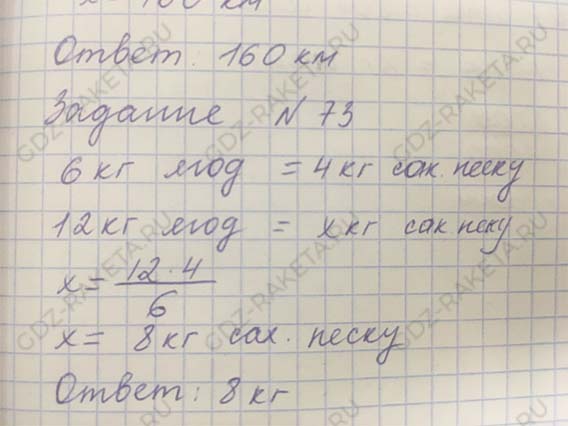 x = 160 км
Ответ. 160 км
Задание N 73
6 кг ягод = 4 кг сах. песку
12 кг ягод = x кг сах. песку
x = 12 · 4
6
x = 8 кг сах. песку
Ответ: 8 кг
GDZ-RAKETA.RU
GDZ-RAKETA.RU
GDZ-RAKETA.RU
GDZ-RAKETA.RU
GDZ-RAKETA.RU
GDZ-RAKETA.RU